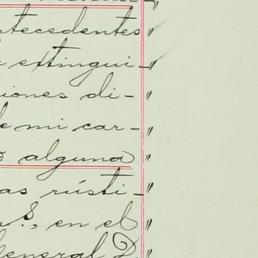 ntecedentes
extingui-
iones di-
de mi car-
alguna
as rústi-
s., en el
General D.